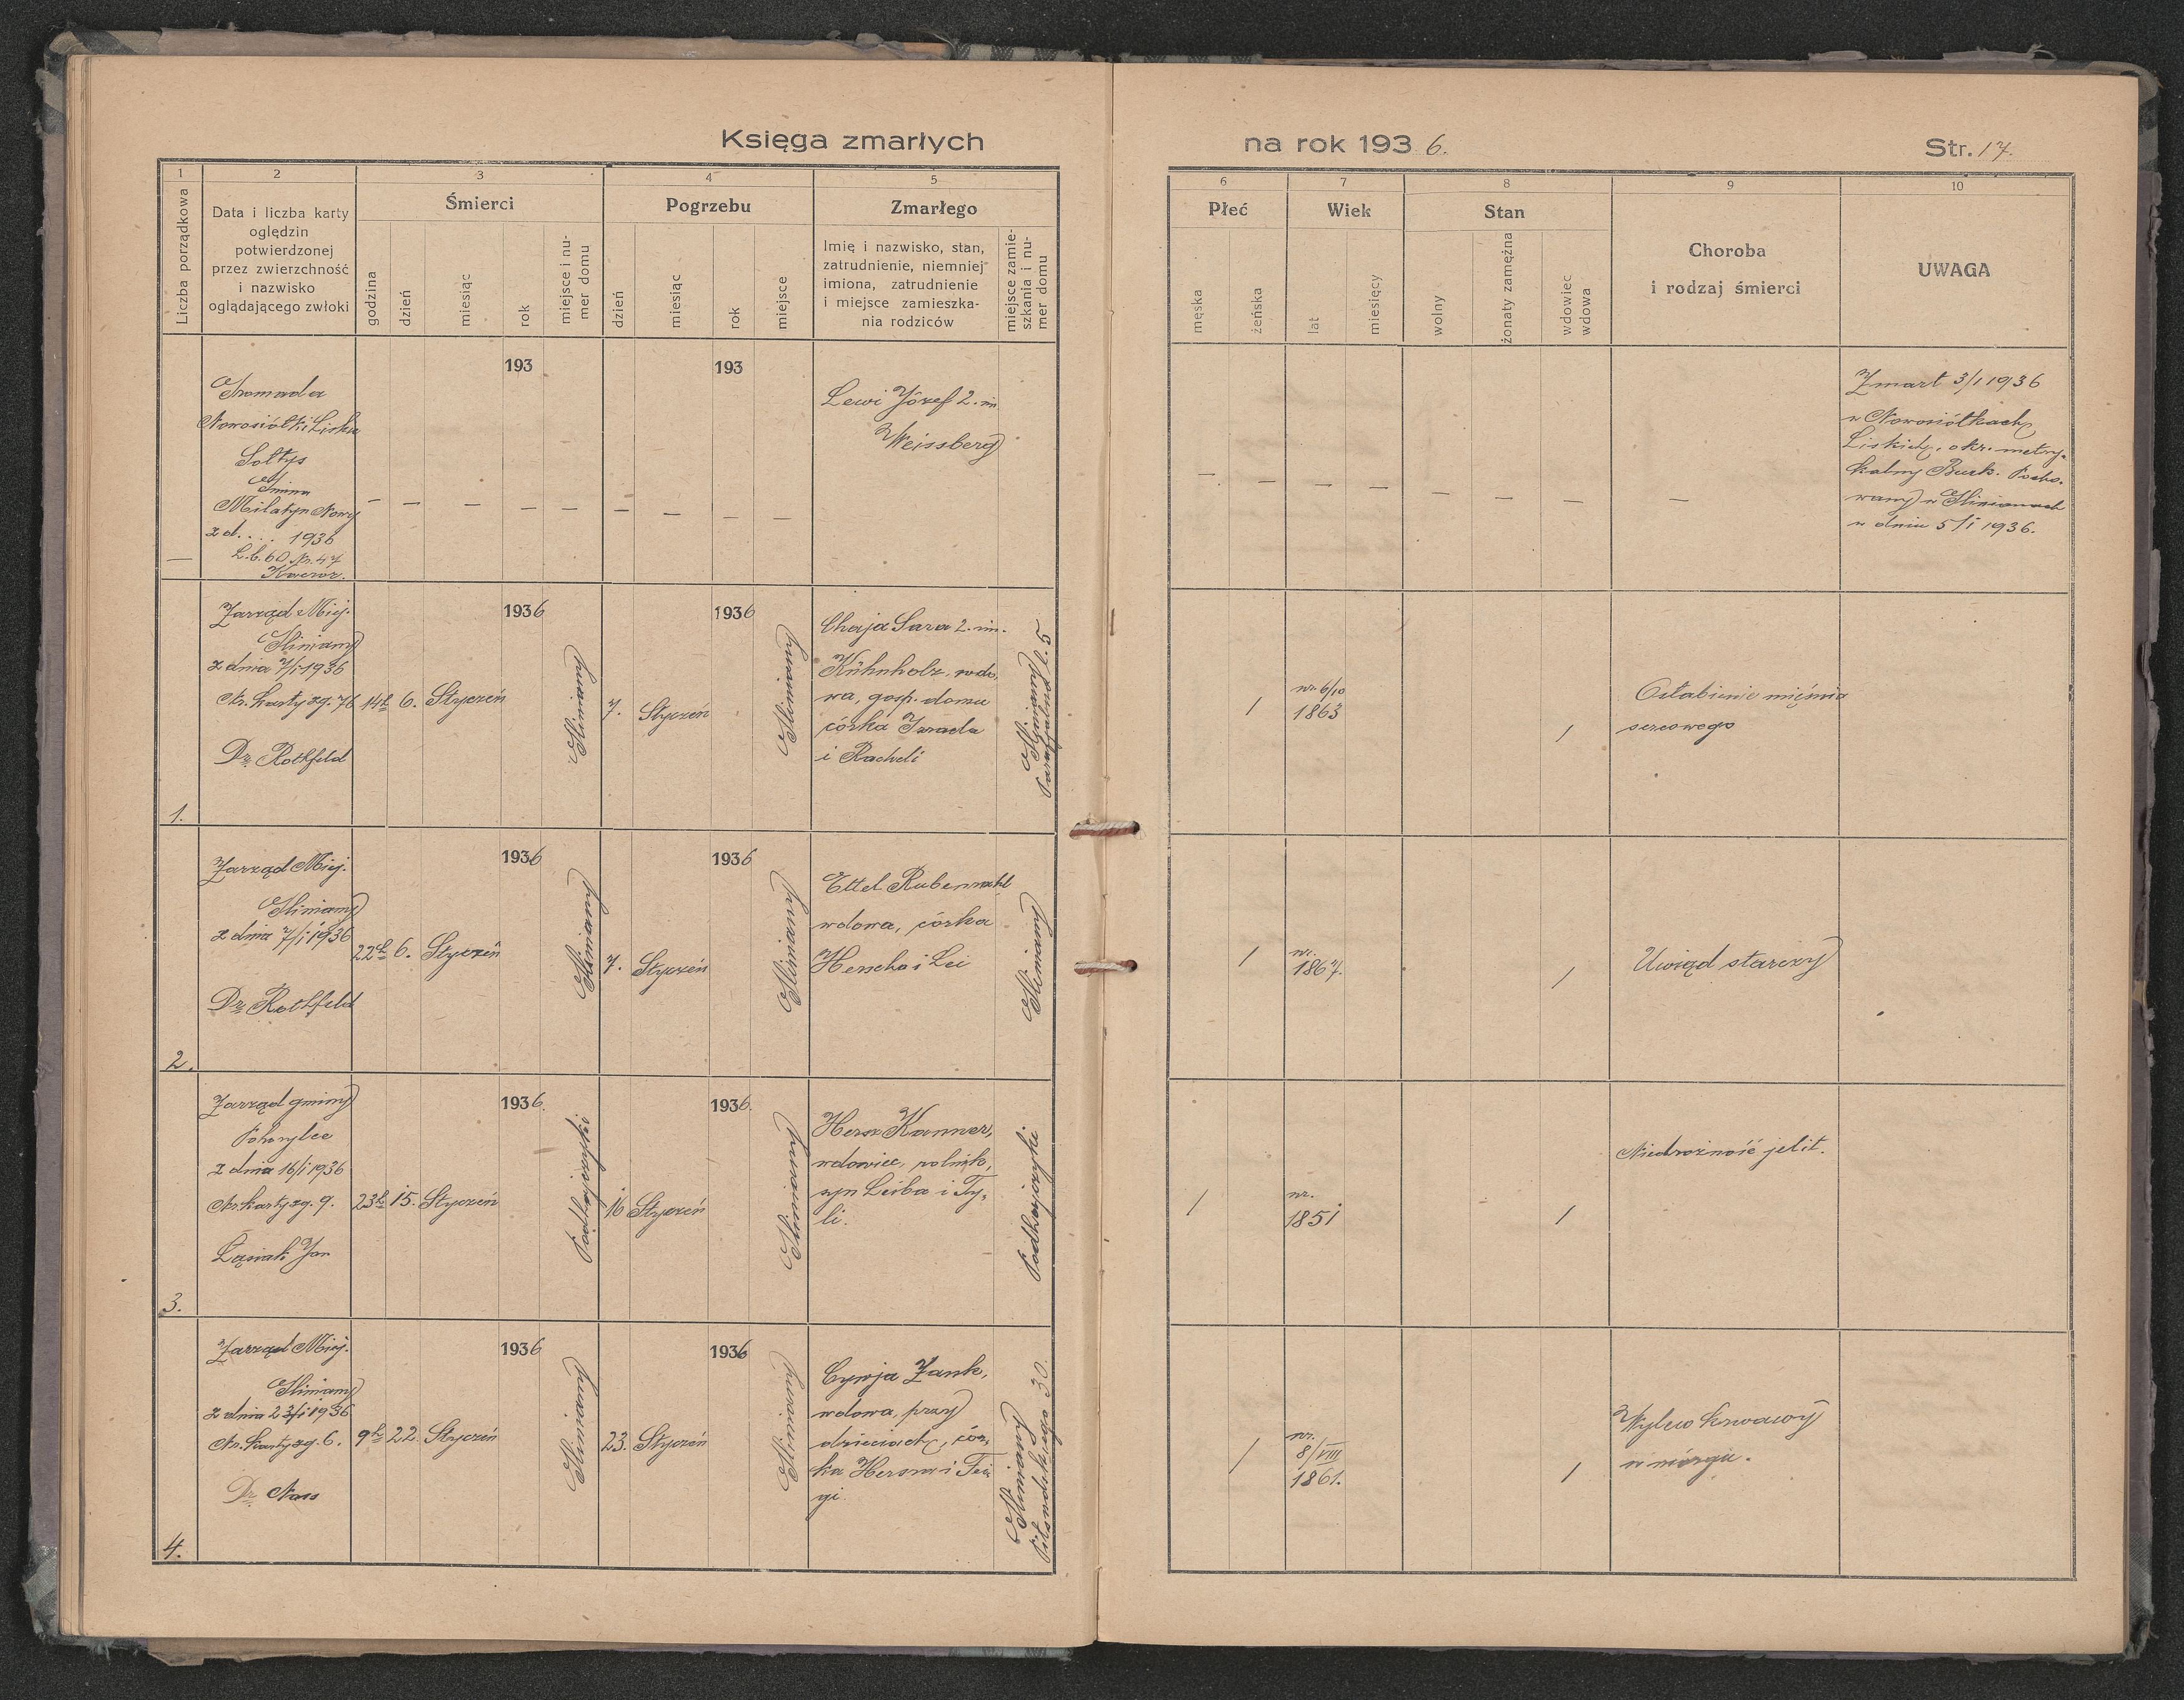 Księga zmarłych
na rok 1936.
Str. 17.
1
2
3
4
5
6
7
8
9
10
Liczba porządkowa
Data i liczba karty
oględzin
potwierdzonej
przez zwierzchność
i nazwisko
oglądającego zwłoki
Śmierci
godzina
dzień
miesiąc
rok
miejsce i nu-
mer domu
Pogrzebu
dzień
miesiąc
rok
miejsce
Zmarłego
Imię i nazwisko, stan,
zatrudnienie, niemniej
imiona, zatrudnienie
i miejsce zamieszka-
nia rodziców
miejsce zamie-
szkania i nu-
mer domu
Płeć
męska
żeńska
Wiek
lat
miesięcy
Stan
wolny
żonaty zamężna
wdowiec
wdowa
Choroba
i rodzaj śmierci
UWAGA
—
Gromada
Nowosiółki Liskie
Sołtys
Gmina
Milatyn Nowy
z d. . . . 1936
L.b. 60 Nr. 47
193
193
— — — — — — — — —
Lewi Józef 2. im
Weissberg
— — — — — — — —
Zmarł 3/I 1936
w Nowosiółkach
Liskich, okr. metry-
kalny Busk. Pocho-
wany w Glinianach
w dniu 5/I 1936.
1.
Zarząd Miej.
Gliniany
z dnia 7/I 1936
Nr. karty zg. 76
Dr. Rothfeld
14h
6.
Styczeń
1936
Gliniany
7.
Styczeń
1936
Gliniany
Chaja Sara 2. im.
Kühnholz, wdo-
wa, gosp. domu
córka Izraela
i Racheli
Gliniany
Parafjalna l. 5
/
ur. 6/10
1863
/
Osłabienie mięśnia
sercowego
2.
Zarząd Miej.
Gliniany
z dnia 7/I 1936
Dr. Rothfeld
22h
6.
Styczeń
1936
Gliniany
7.
Styczeń
1936
Gliniany
Ettel Rubenwahl
wdowa, córka
Hencha i Lei
Gliniany
/
ur.
1867.
/
Uwiąd starczy
3.
Zarząd gminy
Pohorylce
z dnia 16/I 1936
Nr. karty zg. 9.
Łosiak Jan
23h
15.
Styczeń
1936.
Podhajczyki
16
Styczeń
1936.
Gliniany
Hersz Kanner,
wdowiec, rolnik,
syn Leiba i Ty-
li.
Podhajczyki
/
ur.
1851
/
Niedrożność jelit.
4.
Zarząd Miej.
Gliniany
z dnia 23/I 1936
Nr. karty zg. 6.
Dr. Nass
9h
22.
Styczeń
1936
Gliniany
23.
Styczeń
1936
Gliniany
Cywja Zank,
wdowa, przy
dzieciach, cór-
ka Hersza i Fei-
gi.
Gliniany
Piłsudskiego 30.
/
ur.
8/VIII
1861.
/
Wylew krwawy
w mózgu.